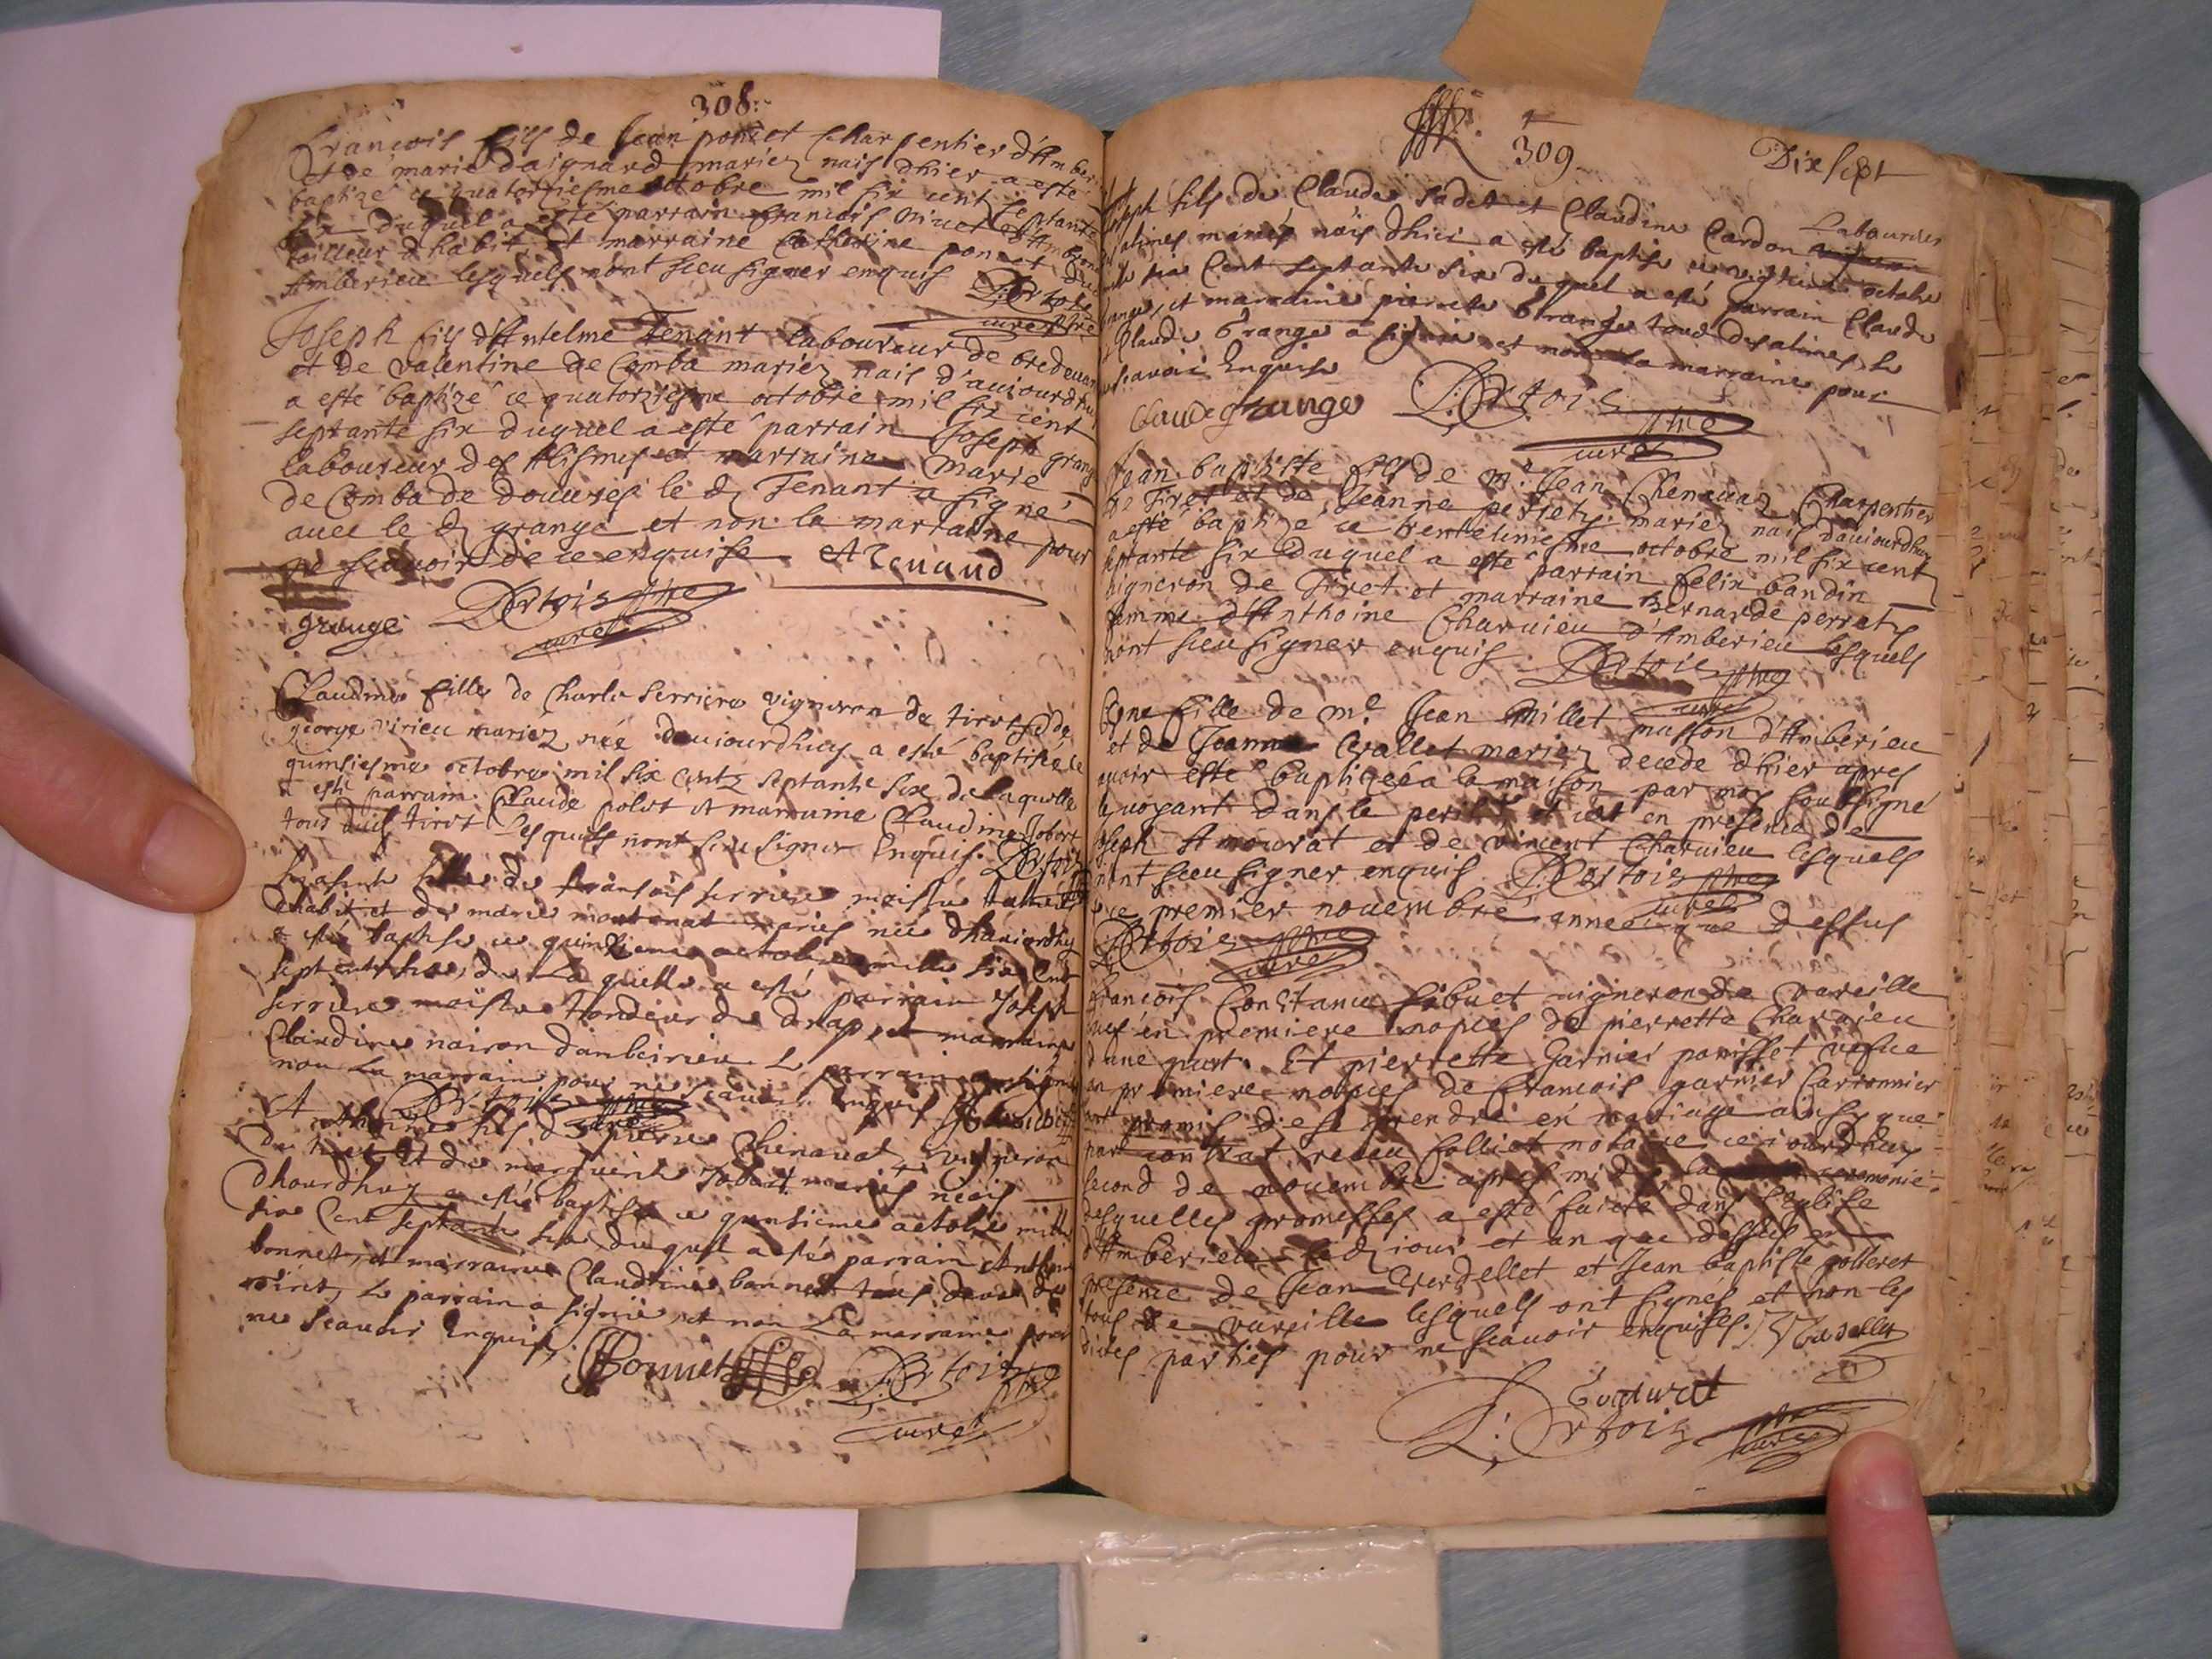 308.
Francois fils de Jean poncet Charpentier d'Amber
et de marie daignard mariez nais dhier a esté
baptizé ce quatorziesme octobre mil six cent septante
six duquel a esté parrain francois
tailleur d'habit et marraine Catherine poncet
Amberieu lesquels n'ont sceu signer enquis
D'Ortois
curé
Joseph fils d'Antelme Tenant laboureur de bredeuan
et de valentine de Comba mariez nais d'auiourdhuy
a esté baptizé ce quatorziesme octobre mil six cent
septante six duquel a esté parrain Joseph grange
laboureur des Alismes et marraine Marie
de Comba de douures le d. Tenant a signé
auec le d. grange et non la marraine pour
ne scauoir de ce enquise ATenand
grange D'Ortois ptre
curé
Claudine fille de Charle Serriere vigneron de tiret et de
george virieu mariez née daujourdhuy a esté baptisée le
quinsiesme octobre mil six centz septante six de laquelle
a esté parrain Claude polet et marraine Claudine Jobert
tous dud. tiret lesquels nont sceu signer Enquis. D'Ortois
fille de fransois serriere maistre
dhabit et de marie montenat mariés née dhauiordhuy
a esté baptise ce quinzieme octobre mille six cent
septante six, de La quelle a esté parrain Joseph
serriere maistre tondeur de drap, et marraine
Claudine nairon danbeirieu Le parrain a signé
non La marraine pour ne scauoir enquis
D'Ortois ptre curé
Anthoine fils de pierre Chenauat vigneron
de tiret et de marguerite Jobert mariés neais
dhourdhuy a esté baptise ce quinsieme octobre mil
six Cent septante six, duquel a esté parrain Anthoine
bonnet, et marraine Claudine bonnet tous deux de
tiret, Le parrain a signé, et non La marraine pour
ne scauoir Enquis
Bonnet D'Ortois ptre
curé
309 Dix sept
Joseph fils de Claude sadet et Claudine Cardon Laboureur
alimes mariés nais dhier a esté baptise ce octobre
mil six Cent septante six du quel a esté parrain Claude
grange, et marraine pierrette Grange tous desalimes Le
d Claude Grange a signé et non La marraine pour
ne scauoir Enquise
Claude grange D'Ortois ptre
curé
Jean baptiste fils de Me. Jean Chenauaz Charpentier
de Tiret et de Jeanne perretz mariez nais d'auiourdhuy
a esté baptizé ce trentéunie sme octobre mil six cent
septante six duquel a esté parrain felix bandin
uigneron de Tiret et marraine Bernarde perretz
femme d'Anthoine Charuieu d'Amberieu lesquels
n'ont sceu signer enquis D'Ortois ptre
curé
fille de Me. Jean Millet masson d'Amberieu
et de Jeanne Vallet mariez decede dhier apres
auoir esté baptizée a la maison par moy soubsigné
le uoyant dans le peril et cet en presence de
Joseph Amourat et de vincent Charuieu lesquels
n'ont sceu signer enquis D'Ortois ptre curé
ce premier nouembre année que dessus
D'Ortois ptre
curé
Francois Constance Sibuet uigneron de vareille
uef en premiere nopces de pierrette Charuieu
d'une part. Et pierrette Garnier panisset vefue
en premiere nopces de francois garnier Carronnier
ont promis de se prendre en mariage ainsy que
part contrat receu folliet notaire ce iourdhuy
second de nouembre apres midy la ceremonie
desquelles promesses a esté faicte dans l'eglise
d'Amberieu led. iour et an que dessus en
presence de Jean Verdellet et Jean baptiste golleret
tous de vareille lesquels ont signés et non les
dictes parties pour ne scauoir enquises. J Verdellet
D'Ortois ptre
curé